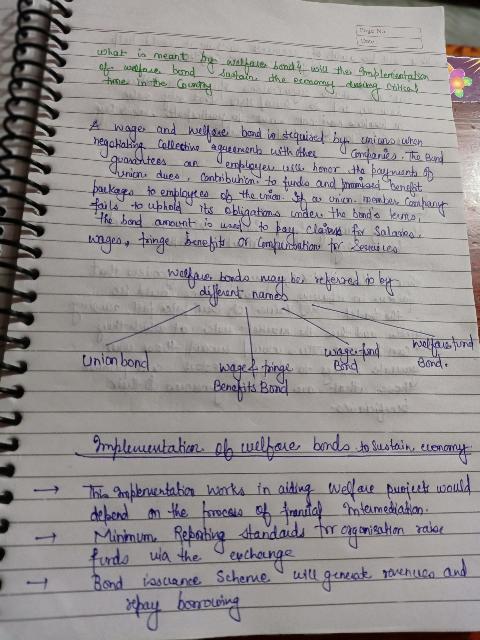 Page No.
Date
what is meant by welfare bond? will the implementation
of welfare bond sustain the economy during critical
time in the Country
A wage and welfare bond is required by unions when
negotiating collective agreements with other companies. The Bond
guarantees an employer will honor the payments of
union dues, contribution to funds and promised benefit
packages to employees of the union. If a union member company
fails to uphold its obligations under the bond's terms,
the bond amount is used to pay claims for Salaries,
wages, fringe benefits or Compensation for Services
Welfare bonds may be referred to by
different names
Union bond
wage & fringe
Benefits Bond
wage fund
Bond
welfare fund
Bond.
Implementation of welfare bonds to sustain economy
→ This implementation works in aiding welfare projects would
depend on the process of financial intermediation.
→ Minimum Reporting standards for organisation raise
funds via the exchange
→ Bond issuance Scheme will generate revenues and
repay borrowing